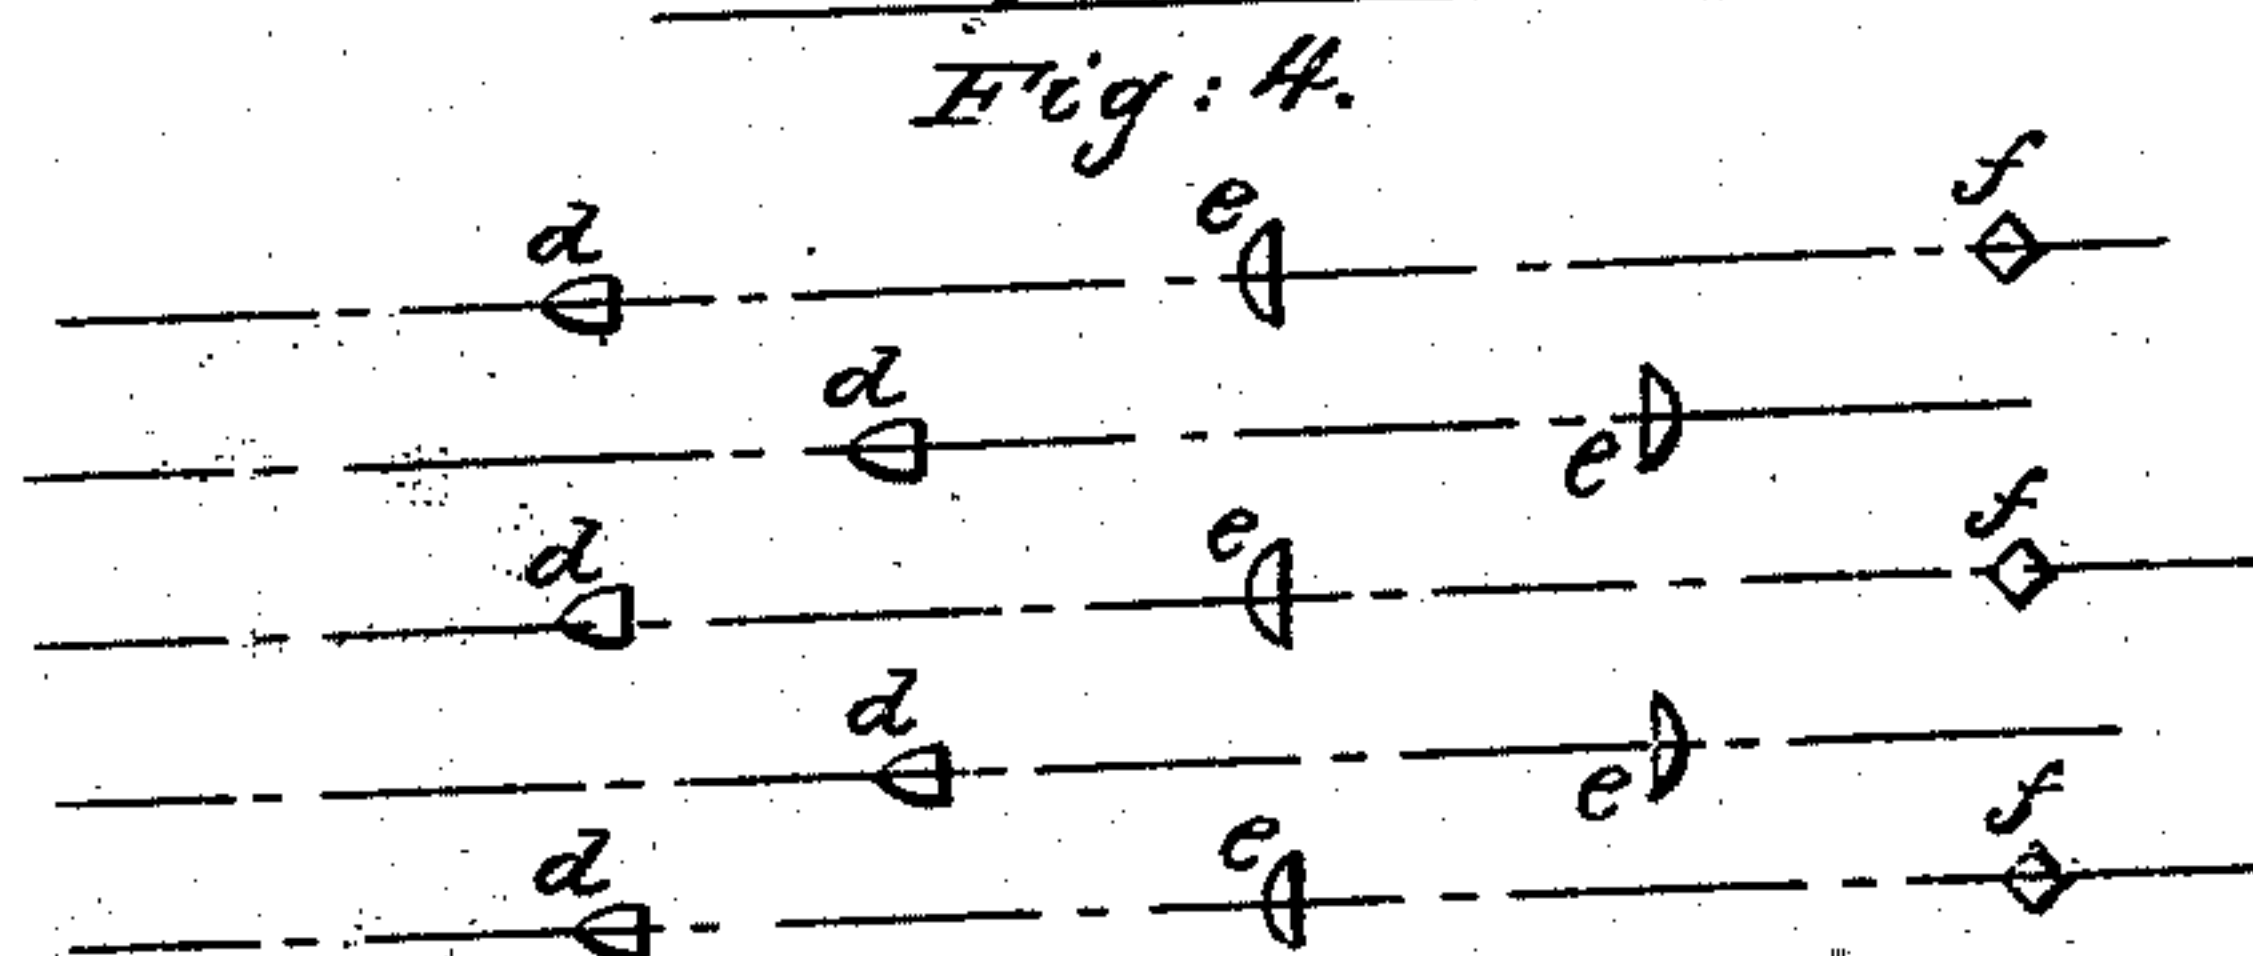 Fig: 4.
d e f
d e
d e f
d e
d e f